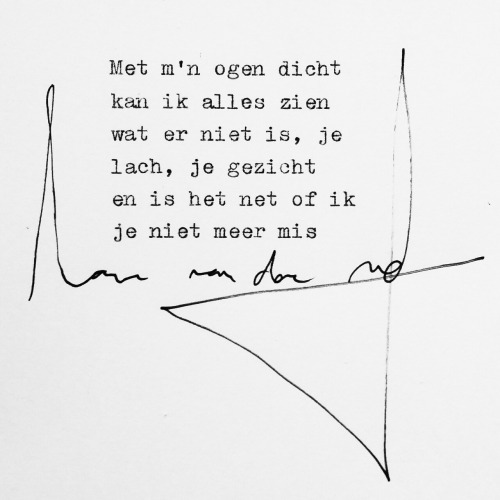 Met m'n ogen dicht
kan ik alles zien
wat er niet is, je
lach, je gezicht
en is het net of ik
je niet meer mis
van der